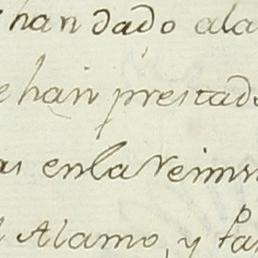 han dado ala
han prestad
en la Reim
Alamo, y